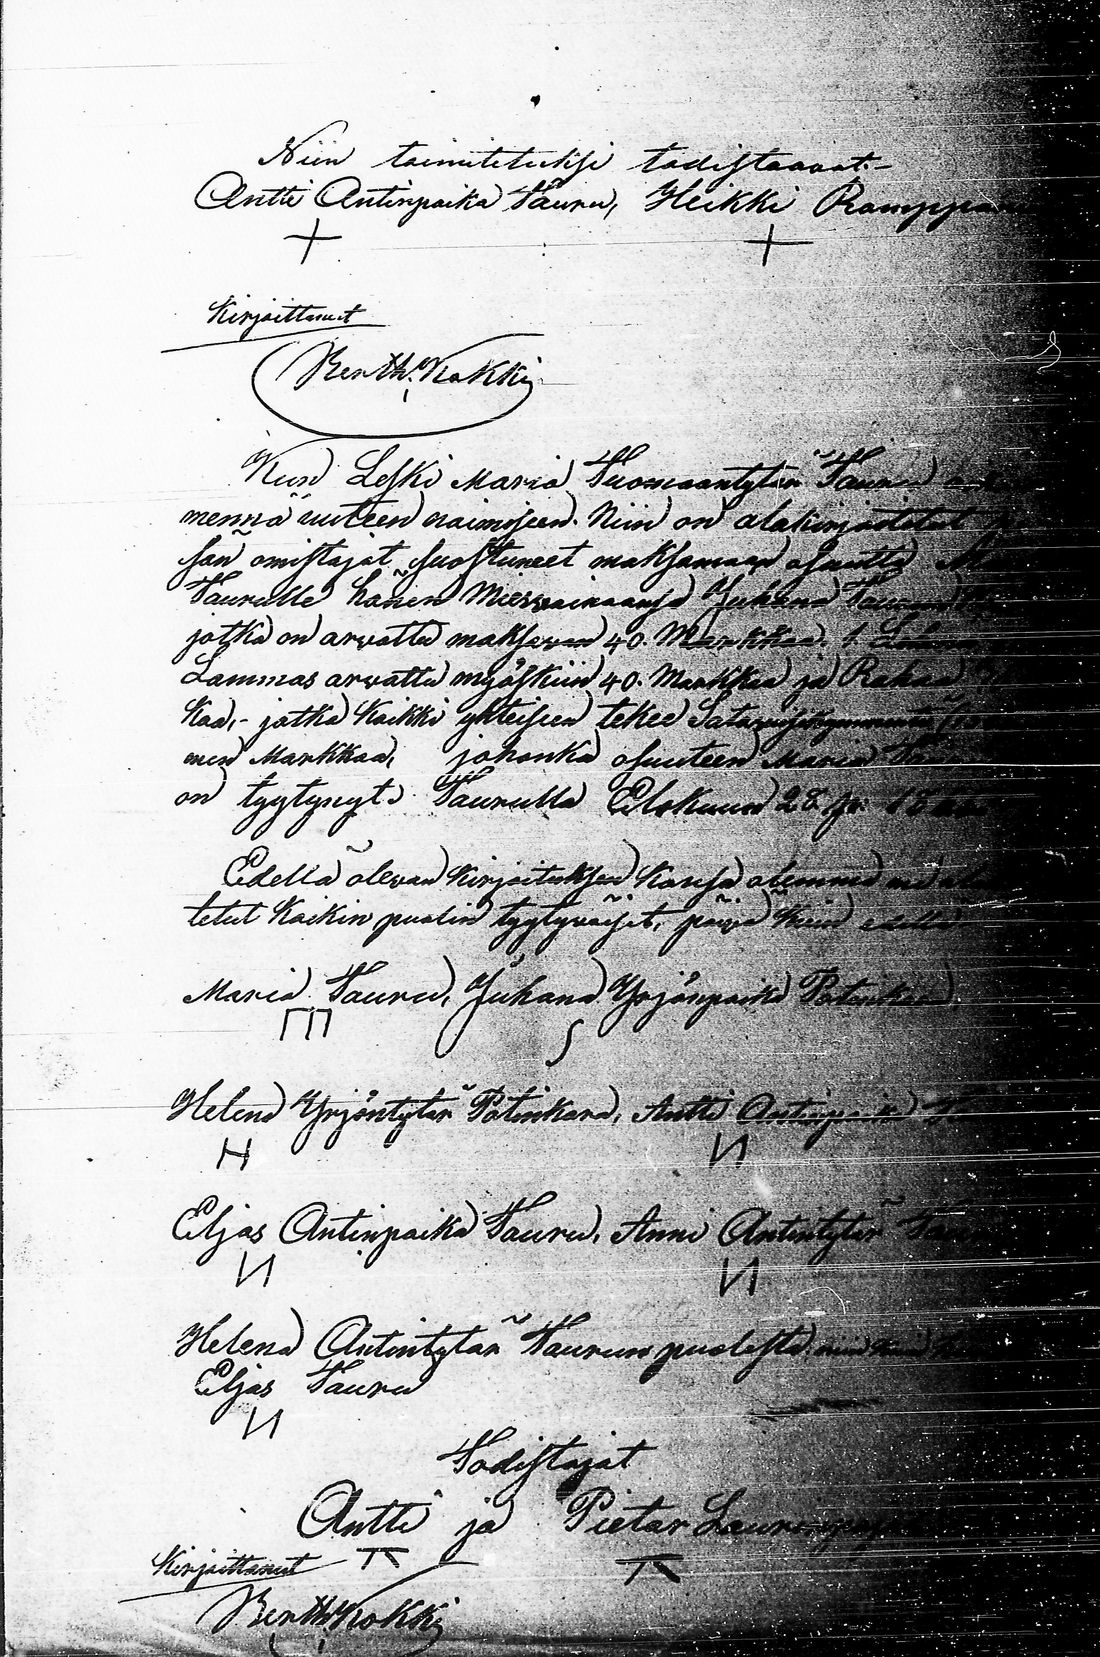 Niin toimitetuksi todistaavat:-
Antti Antinpoika Tauru, Heikki
Kirjoittanut
Berth. Kokki
Kun Leski Maria Tuomaantytär Tauru
mennä uuteen naimiseen. Niin on alakirjoitetut
san omistajat suostuneet maksamaan osuutta
Taurulle hänen Miesvainaansa Juhana Taurun
jotka on arvattu maksavan 40. Markkaa. 1
Lammas arvattu myöskiin 40. Markkaa ja Rahaa
kaa,- jotka kaikki yhteiseen tekee
men Markkaa, johonka osuuteen Maria
on tyytynyt. Taurulla Elokuun 28 p:
Edellä olevan kirjoituksen kanssa olemma me
tetut kaikin puolin tyytyväiset, päivä kuin edellä
Maria Tauru, Juhana Yrjönpoika Potinkara
Helena Yrjöntytär Potinkara, Antti Antinpoika
H И
Eljas Antinpoika Tauru, Anni Antintytär
И И
Helena Antintytär Taurun puolesta niin kuin
Eljas Tauru
И
Todistajat
Antti ja Pietar
Kirjoittanut
Berth. Kokki